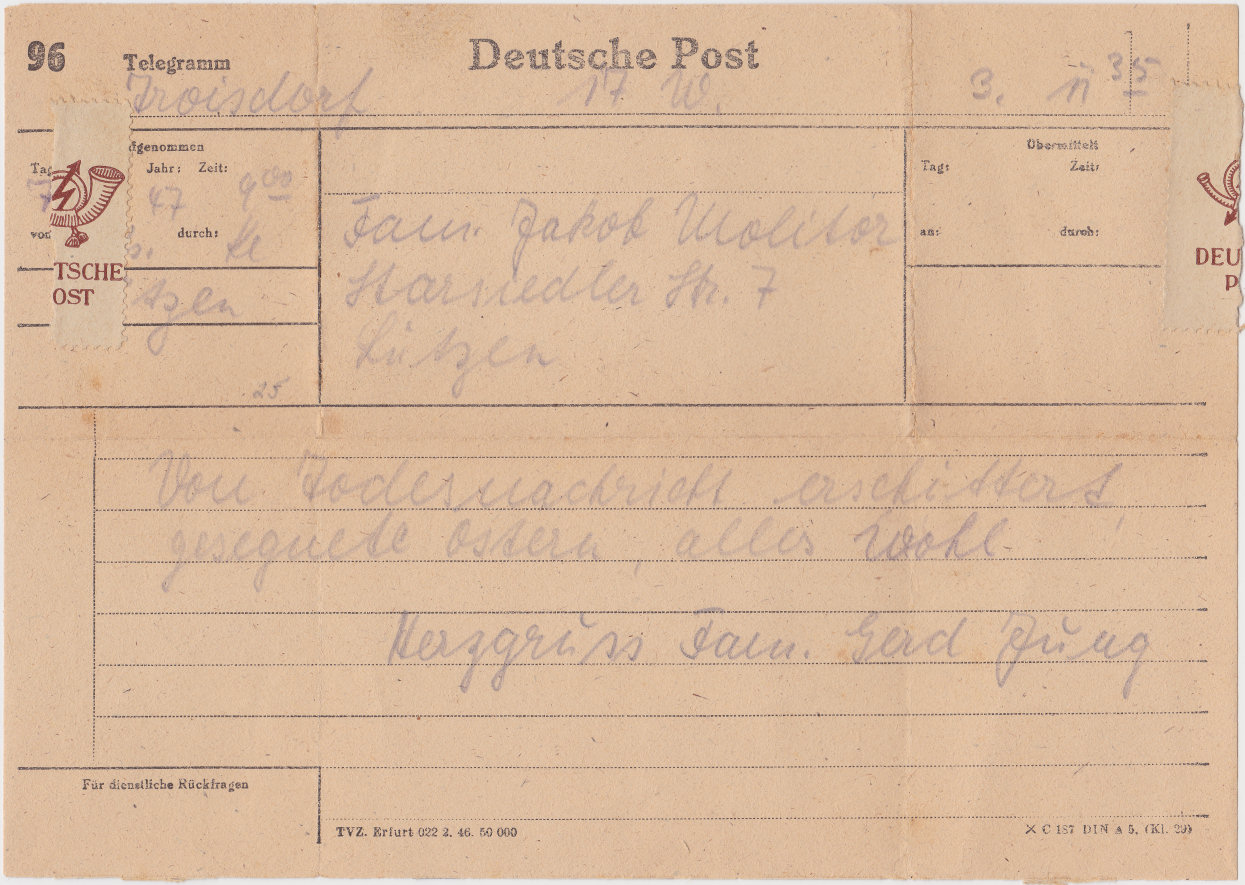 96 Telegramm Deutsche Post
Troisdorf 17 W. 3. 11 35
fgenommen
Tag Jahr: Zeit:
7 47 9 00
von durch:
Ke
TSCHE
OST
tzen
25
Fam. Jakob Molitor
Starsiedler Str. 7
Lützen
Übermittelt
Tag: Zeit:
an: durch:
DEU
P
Von Todesnachricht erschüttert,
gesegnete Ostern, alles wohl
Herzgruss Fam. Gerd Jung
Für dienstliche Rückfragen
TVZ. Erfurt 022 2. 46. 50 000
C 187 DIN A 5. (Kl. 29)